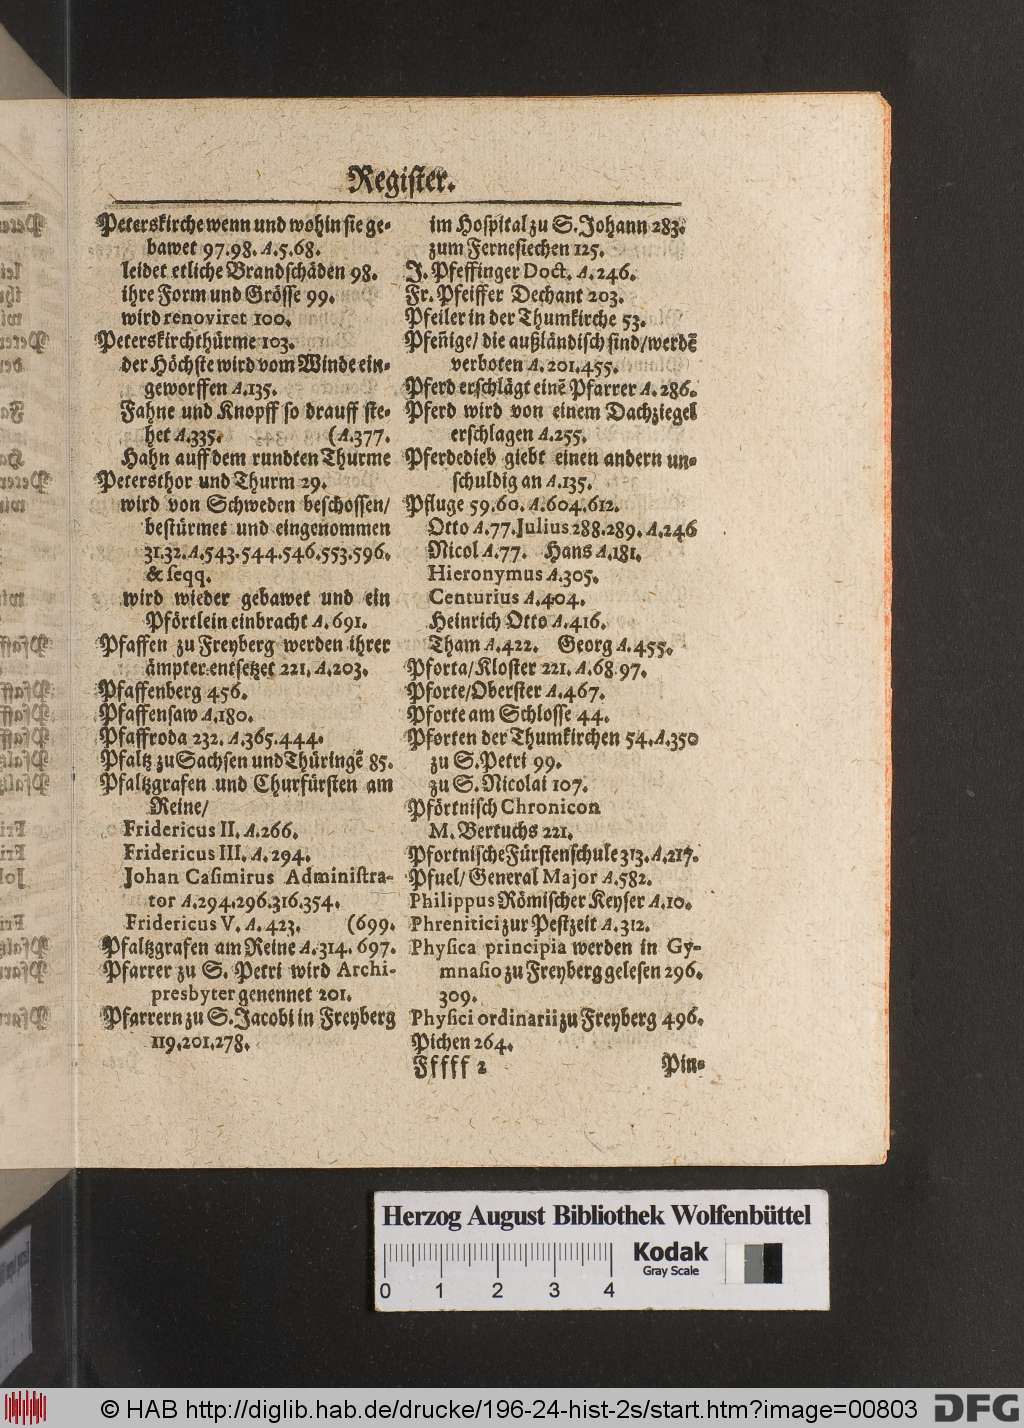 Register.
Peterskirche wenn und wohin sie ge-
bawet 97.98. A.5.68.
leidet etliche Brandschäden 98.
ihre Form und Grösse 99.
wird renoviret 100.
Peterskirchthürme 103.
der Höchste wird vom Winde ein-
geworffen A.135.
Fahne und Knopff so drauff ste-
het A.335. (A.377.
Hahn auff dem rundten Thurme
Petersthor und Thurm 29.
wird von Schweden beschossen/
bestürmet und eingenommen
31.32. A.543.544.546.553.596.
& seqq.
wird wieder gebawet und ein
Pförtlein einbracht A.691.
Pfaffen zu Freyberg werden ihrer
ämpter entsetzet 221. A.203.
Pfaffenberg 456.
Pfaffensaw A.180.
Pfaffroda 232. A.365.444.
Pfaltz zu Sachsen und Thüringē 85.
Pfaltzgrafen und Churfürsten am
Reine/
Fridericus II. A.266.
Fridericus III. A.294.
Johan Casimirus Administra-
tor A.294.296.316.354.
Fridericus V. A.423. (699.
Pfaltzgrafen am Reine A.314.697.
Pfarrer zu S. Petri wird Archi-
presbyter genennet 201.
Pfarrern zu S. Jacobi in Freyberg
119.201.278.
im Hospital zu S. Johann 283.
zum Fernesiechen 125.
J. Pfeffinger Doct. A.246.
Fr. Pfeiffer Dechant 203.
Pfeiler in der Thumkirche 53.
Pfeñige/ die außländisch sind/werdē
verboten A.201.455.
Pferd erschlägt einē Pfarrer A.286.
Pferd wird von einem Dachziegel
erschlagen A.255.
Pferdedieb giebt einen andern un-
schuldig an A.135.
Pfluge 59.60. A.604.612.
Otto A.77. Julius 288.289. A.246
Nicol A.77. Hans A.181.
Hieronymus A.305.
Centurius A.404.
Heinrich Otto A.416.
Tham A.422. Georg A.455.
Pforta/Kloster 221. A.68.97.
Pforte/Oberster A.467.
Pforte am Schlosse 44.
Pforten der Thumkirchen 54. A.350
zu S. Petri 99.
zu S. Nicolai 107.
Pförtnisch Chronicon
M. Bertuchs 221.
Pfortnische Fürstenschule 313. A.217.
Pfuel/ General Major A.582.
Philippus Römischer Keyser A.10.
Phrenitici zur Pestzeit A.312.
Physica principia werden in Gy-
mnasio zu Freyberg gelesen 296.
309.
Physici ordinarii zu Freyberg 496.
Pichen 264.
Fffff 2 Pin-
Herzog August Bibliothek Wolfenbüttel
Kodak
Gray Scale
0 1 2 3 4
© HAB http://diglib.hab.de/drucke/196-24-hist-2s/start.htm?image=00803
DFG